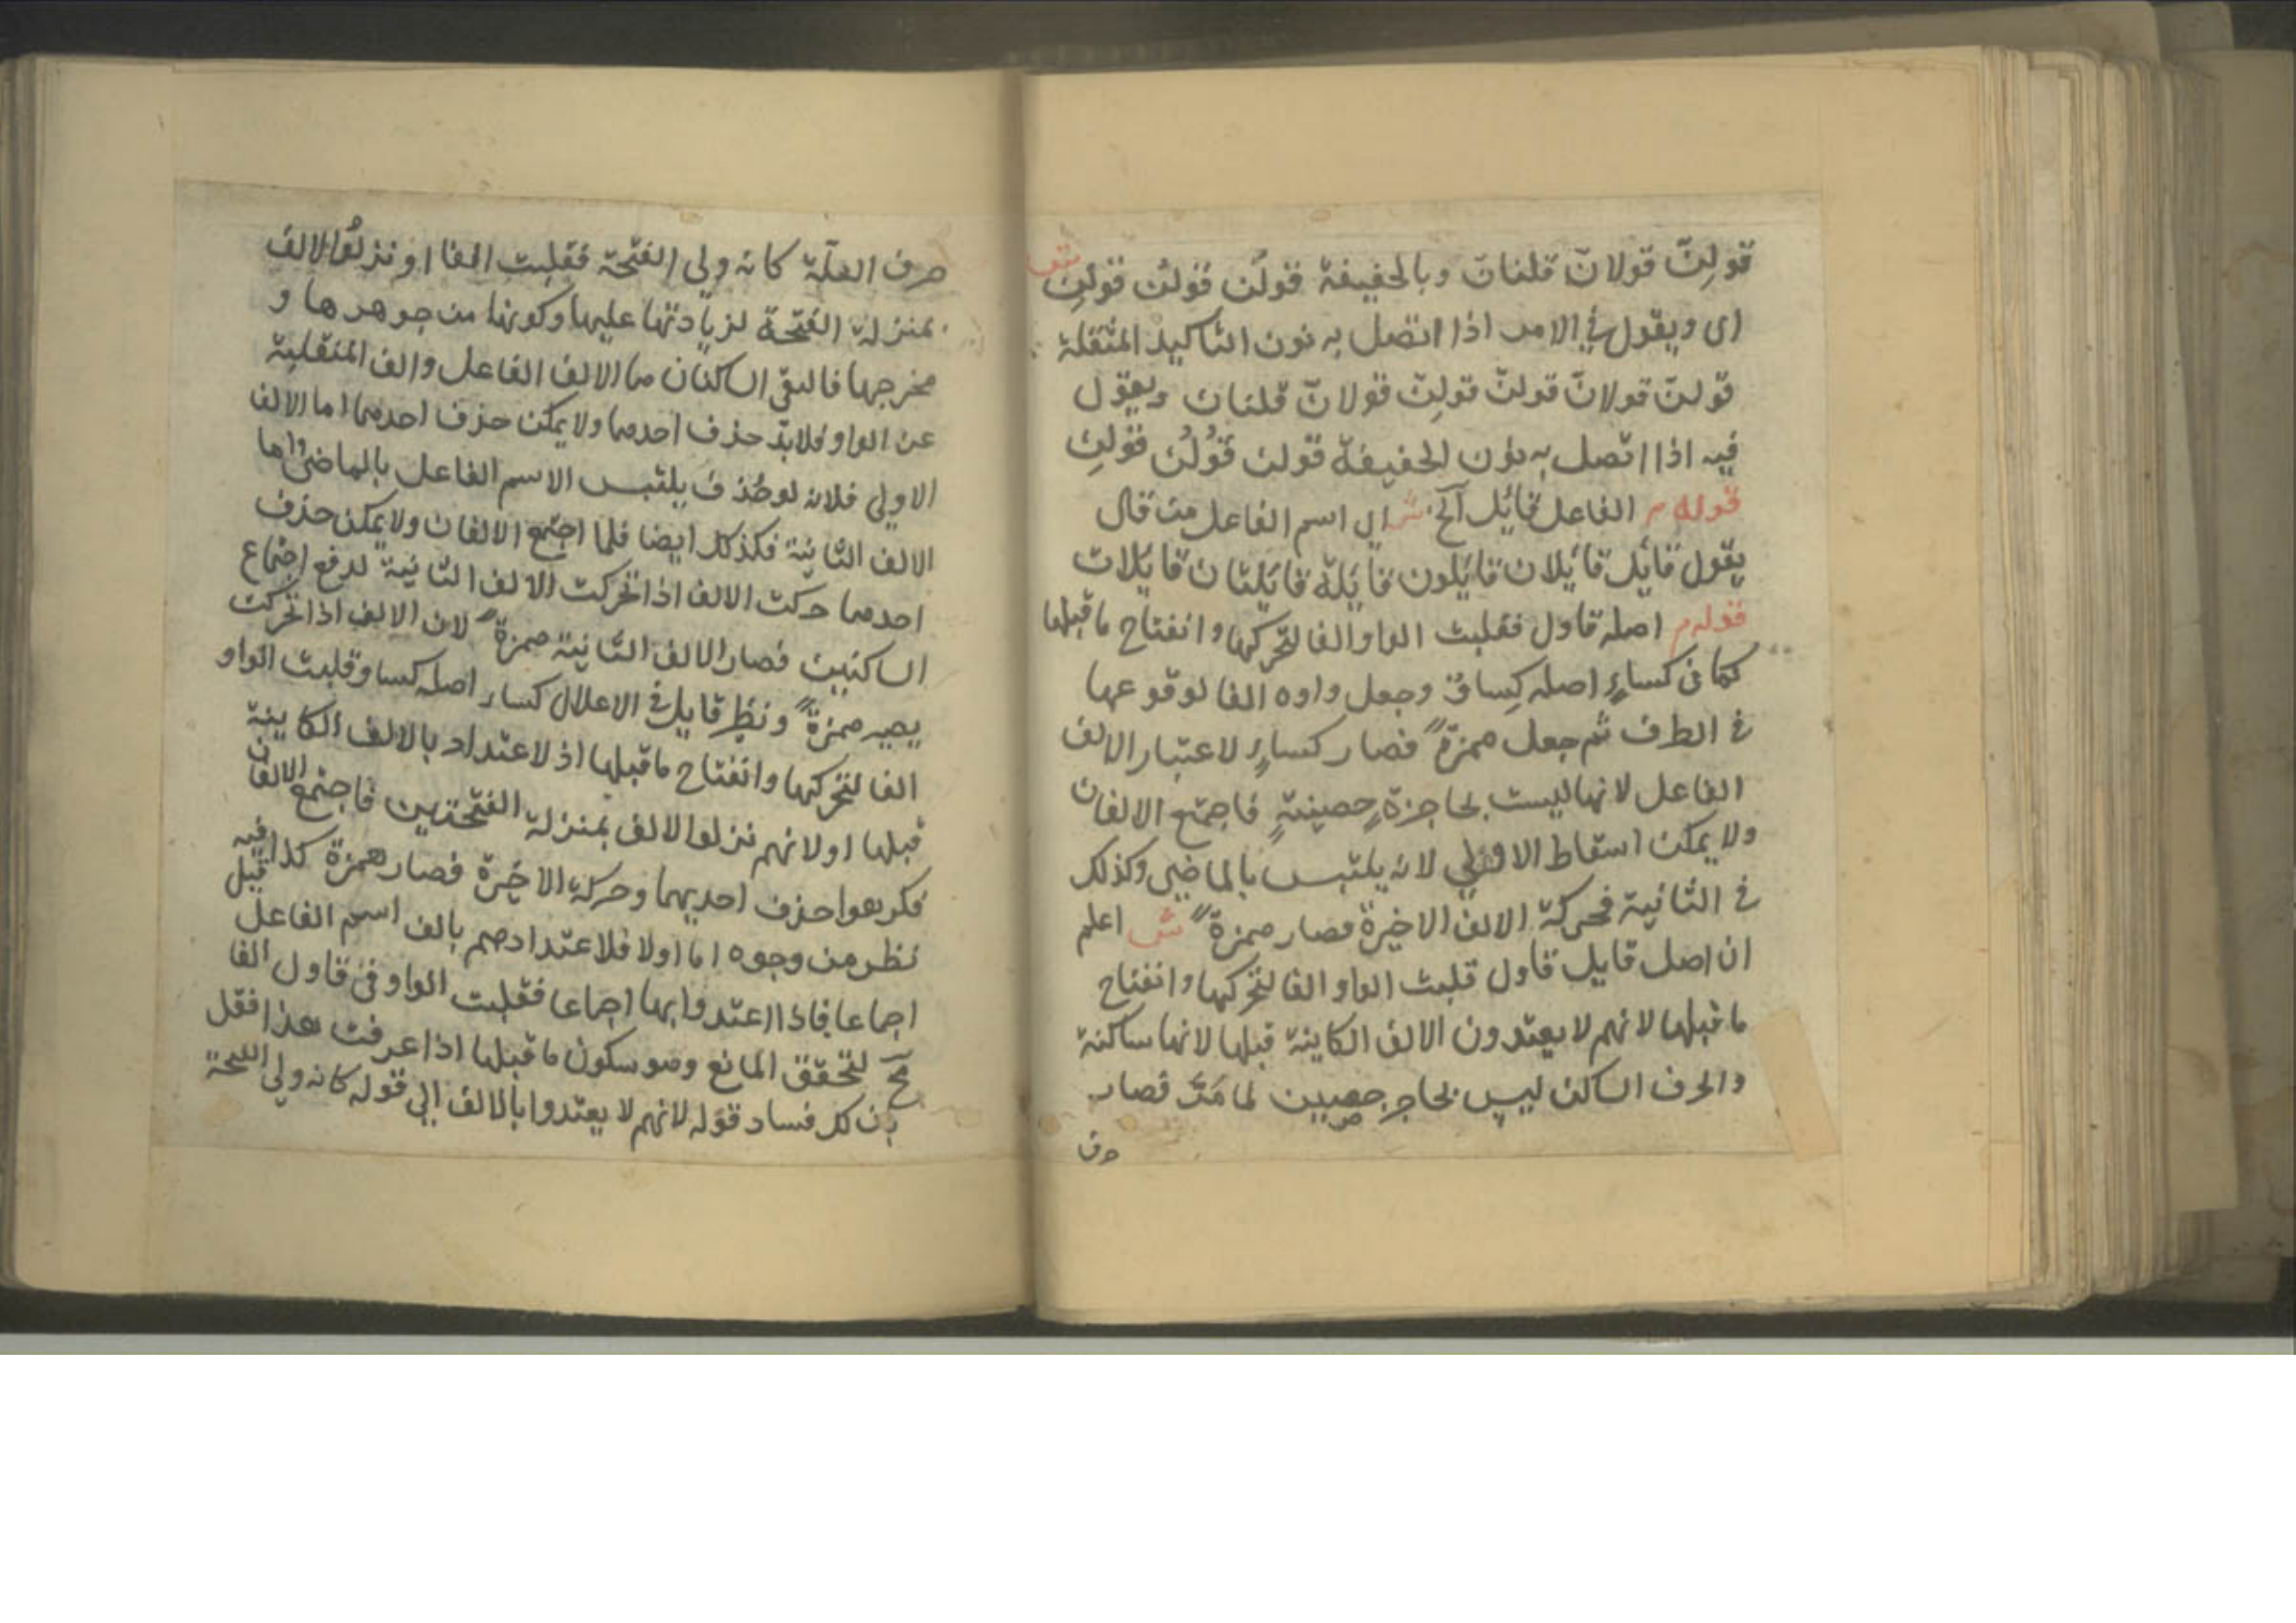 قولِنّ قولانّ قلنانّ وبالخفيفة قولَن قولُن قولِن ش
اى ويقول في الامر اذا اتصل به نون التاكيد المثقلة
قولنّ قولانّ قولنّ قولِنّ قولانّ قلنانّ ويقول
فيه اذا اتصل به نون الخفيفة قولن قُولُن قولِن
قوله م الفاعل قائل آلخ ش اى اسم الفاعل من قال
يقول قائل قائلان قائلون قائلة قائلتان قائلات
قوله م اصله قاول فقلبت الواو الفا لتحركها وانفتاح ماقبلها
كما فى كساءٍ اصله كِساوٌ وجعل واوه الفا لوقوعها
في الطرف ثم جعل همزةً فصار كساءٍ لاعتبار الالف
الفاعل لانها ليست بحاجزةٍ حصينةٍ فاجتمع الالفان
ولا يمكن اسقاط الاولي لانه يلتبس بالماضي وكذلك
في الثانية فحركة الالف الاخيرة فصار همزةً ش اعلم
ان اصل قايل قاول قلبت الواو الفا لتحركها وانفتاح
ماقبلها لانهم لا يعتدون الالف الكاينة قبلها لانها ساكنة
والحرف الساكن ليس بحاجز حصين لما مَرَّ فصار
حرف
حرف العلّة كانه ولى الفتحة فقلبت الفا او نزلُوا الالف
بمنزلة الفتحة لزيادتها عليها وكونها من جوهرها و
مخرجها فالتقى الساكنان هما الالف الفاعل والف المنقلبة
عن الواو فلابدّ حذف احدهما ولا يمكن حذف احدهما اما الالف
الاولى فلانه لو حُذف يلتبس الاسم الفاعل بالماضى واما
الالف الثانية فكذلك ايضا فلما اجتمع الالفان ولا يمكن حذف
احدهما حركت الالف اذا تحركت الالف الثانية لدفع اجتماع
الساكنين فصار الالف الثانية همزةً لان الالف اذا تحركت
يصير همزةً ونظير قايل في الاعلال كساء اصله كساو قلبت الواو
الفا لتحركها وانفتاح ماقبلها اذ لا اعتداد بالالف الكاينة
قبلها او لانهم نزلوا الالف بمنزلة الفتحتين فاجتمع الالفان
فكرهوا حذف احديهما وحركة الاخيرة فصار همزة كذا قيل فيه
نظر من وجوه اما اولا فلاعتدادهم بالف اسم الفاعل
اجماعا فاذا اعتدوا بها اجماعا فقلبت الواو فى قاول الفا
مح لتحقق المانع وهو سكون ماقبلها اذا عرفت هذا فقل
بان لك فساد قوله لانهم لا يعتدوا بالالف الى قوله كانه ولى الفتحة